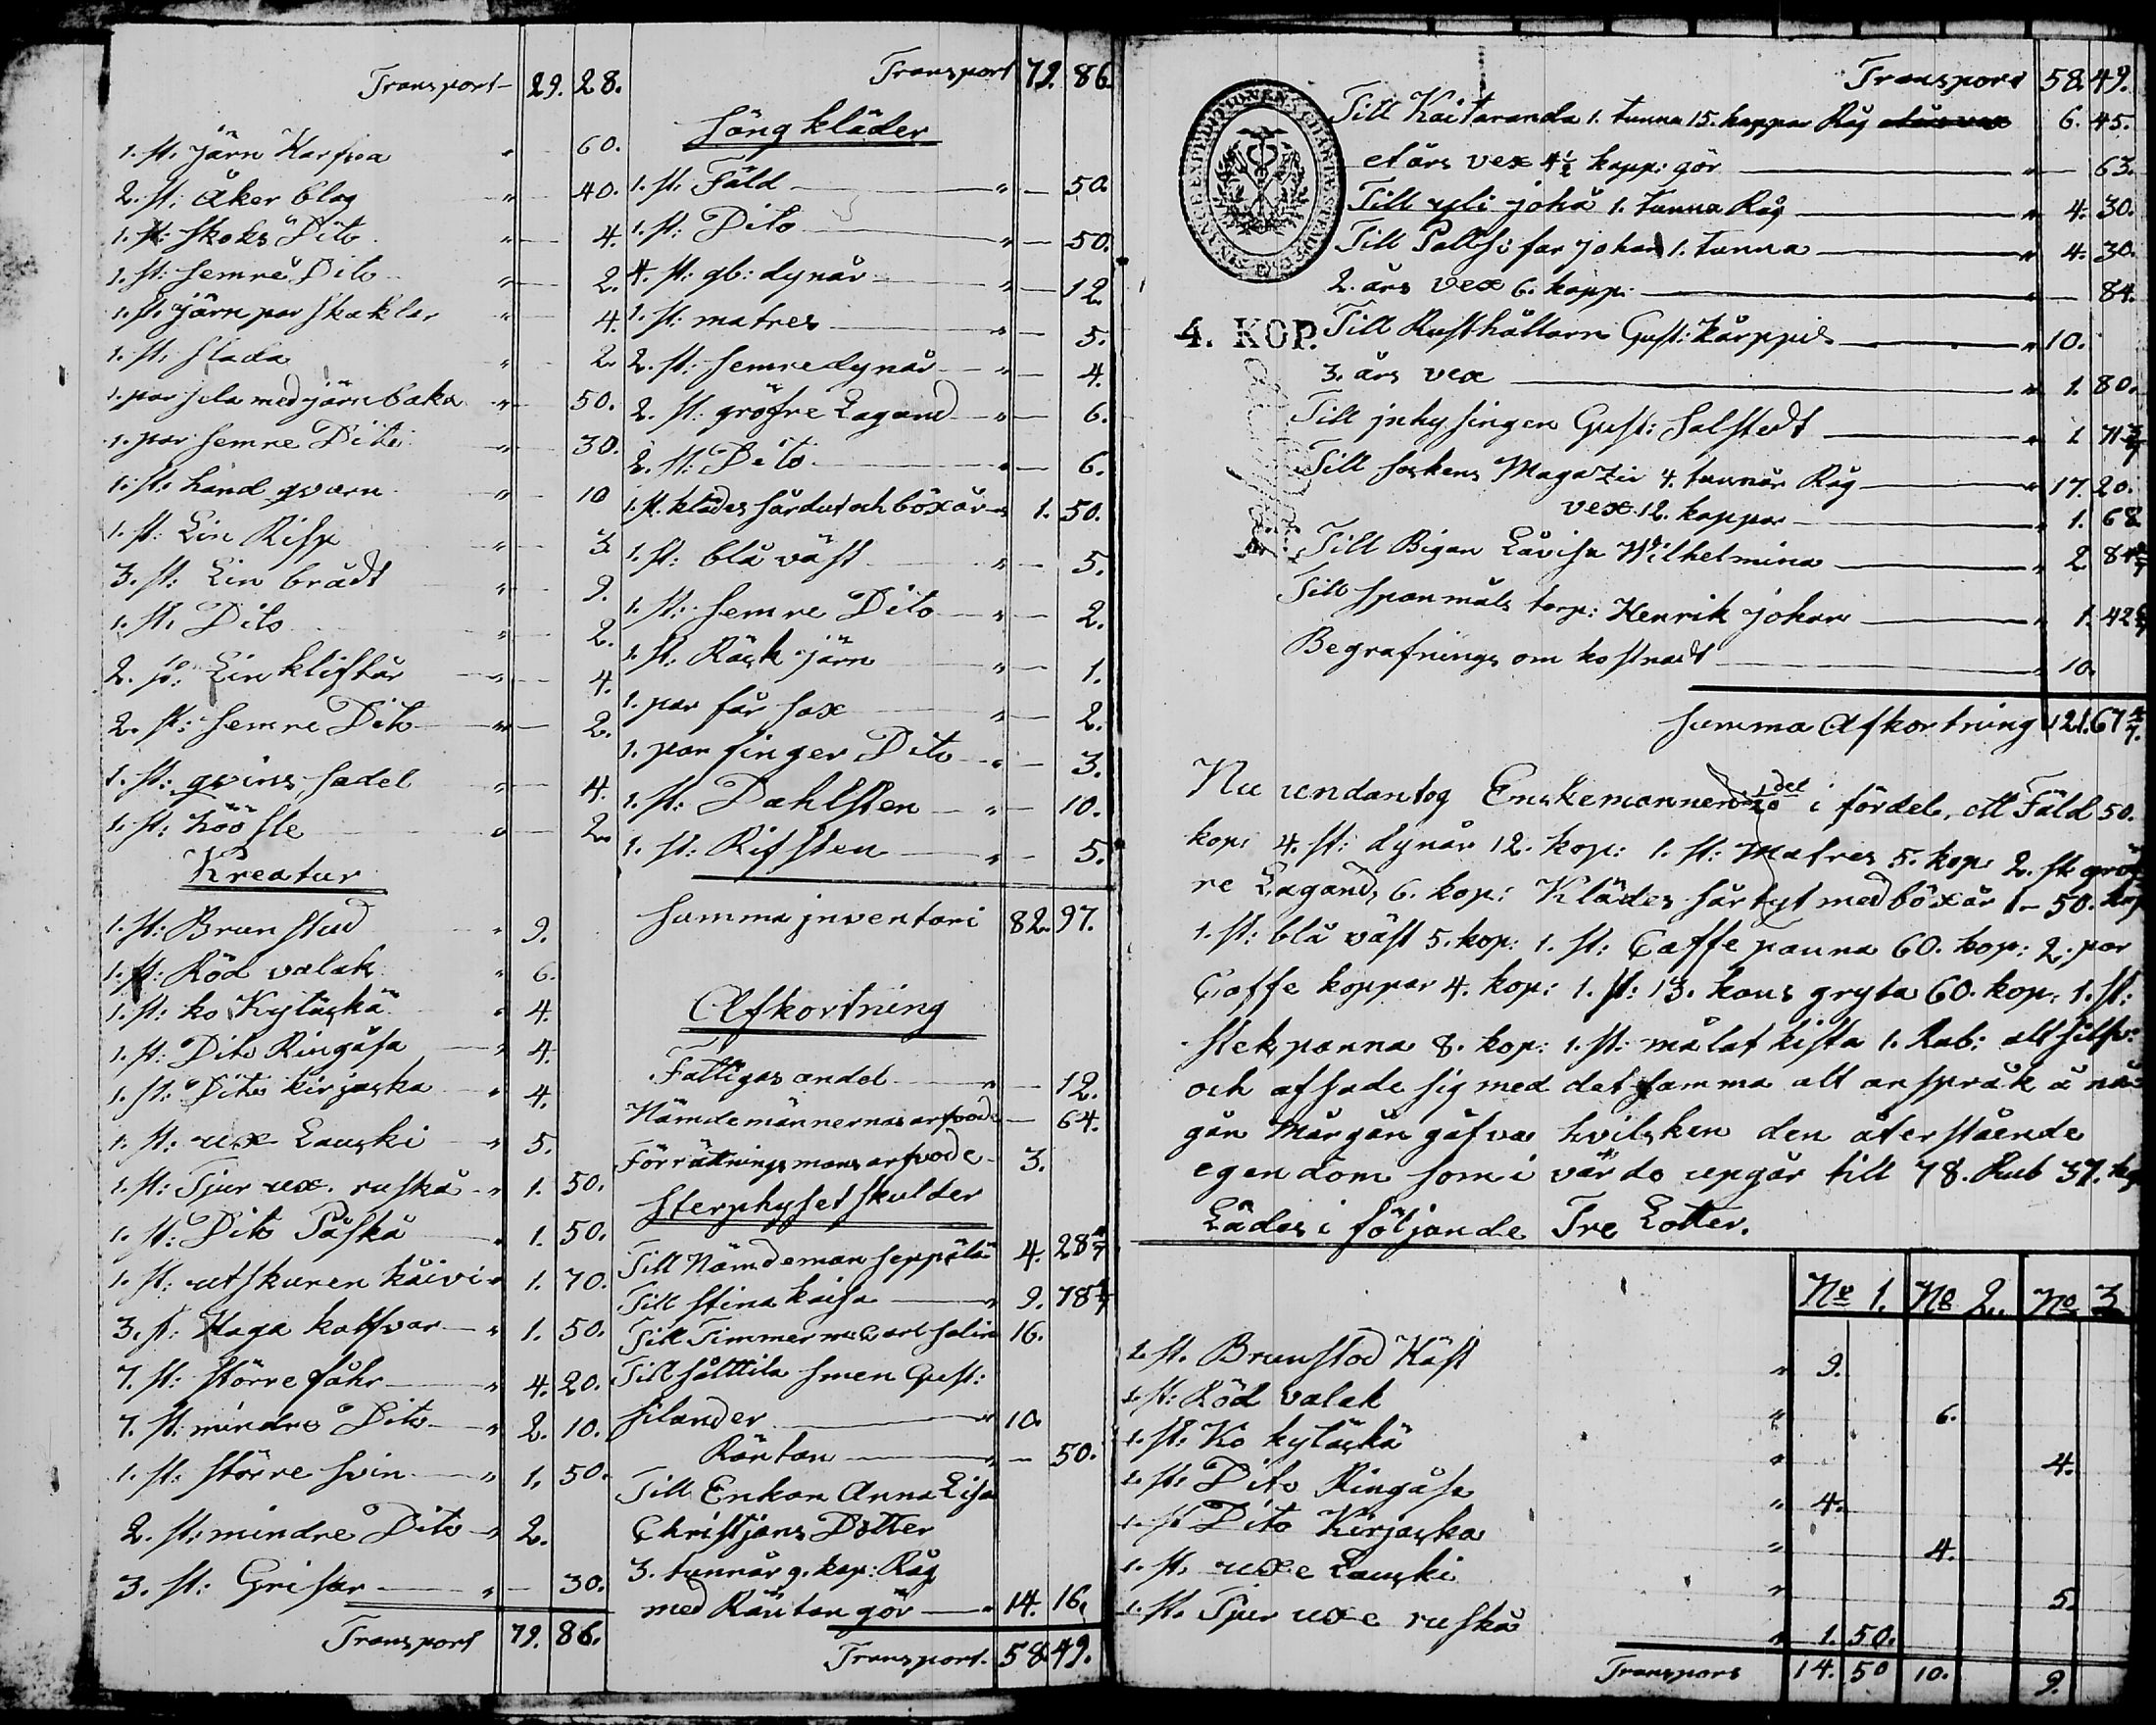 Transport 29. 28.
1. st. järn Harfva " 60.
2. st: åker blog " 40.
1. st: skoks Dito " 4.
1. st: semre Dito " 2.
1. st. järn par skaklar " 4.
1. st. slada " 2.
1. par sela med järn baka " 50.
1. par semre Dito " 30.
1. st. hand qvarn " 10
1. st: Lin Risp " 3.
3. st: Lin brådt " 9.
1. st. Dito " 2.
2. st: Lin kliftår " 4.
2. st: semre Dito " 2.
1. st: qvins sadel " 4.
1. st: höö sle " 2.
Kreatur
1. st: Brun stud " 9.
1. st: Röd valak " 6.
1. st: ko Kytäskä " 4.
1. st: Dito Ringåsa " 4.
1. st: Dito kirjaska " 4.
1. st: uxe Lauski " 5.
1. st: Tjur uxe ruskå " 1. 50.
1. st: Dito Påskå " 1. 50.
1. st: utskuren kåivi " 1. 70.
3. st: Haga kalfvar " 1. 50.
7. st: större fåhr " 4. 20.
7. st: mindre Dito " 2. 10.
1. st: större svin " 1. 50.
2. st: mindre Dito " 2.
3. st: Grisar " 30.
Transport 79. 86.
Transport 79. 86.
Säng kläder
1. st. Fäld " 50.
1. st: Dito " 50.
4. st: gb: dynår " 12.
1. st: matres " 5.
2. st: semre dynår " 4.
2. st: gröfre Lagand " 6.
2. st: Dito " 6.
1. st. klädes sårdut och böxår " 1. 50.
1. st: blå väst " 5.
1. st: semre Dito " 2.
1. st. Räck järn " 1.
1. par får sax " 2.
1. par finger Dito " 3.
1. st: Dahlsten " 10.
1. st: Rifsten " 5.
Summa inventari 82. 97.
Afkortning
Fattigas andel " 12.
Nämdemännernas arfvode 64.
Förrättnings mans arfvode 3.
Sterphuset skulder
Till Nämdeman Seppälä 4. 28 4/7
Till Stina kaisa " 9. 78 4/7
Till Timmerm: Carl Salin 16.
Till såltila smen Gust:
Silander " 10.
Räntan " 50.
Till Enkan Anna Lisa
Christjans Dotter
3. tunnår 9. kap: Råg
med Räntan gör " 14. 16.
Transport. 58. 49.
Transport 58. 49.
Till Kaitaranda 1. tunna 15. kappar Råg 6. 45.
et års vex 4½ kapp: gör " 63.
Till yli johå 1. tunna Råg " 4. 30.
Till Pallsi far johan 1. tunna " 4. 30.
2. års vex 6. kapp: " 84.
4. KOP.
Till Rusthållarn Gust: kårppil " 10.
3. års vex " 1. 80.
Till inhysingen Gust: Salstedt " 1. 71 3/7
Till Sockens Magazin 4. tunnår Råg " 17. 20.
vex 12. kappar " 1. 68
Till Pigan Låvisa Wilhelmina " 2. 84
Till spanmåls torp: Henrik johan " 1. 42 6/7
Begrafnings om kostnadt " 10.
Summa Afkortning 121. 67 4/7.
Nu undantog Enskemannen 1/20 del i fördel, ett Fäld 50.
kop: 4. st: dynår 12. kop: 1. st: Matres 5. kop: 2. st gröf
re Lagands 6. kop: Klädes sårtyt med böxår 1 – 50. kop
1. st: blå väst 5. kop: 1. st: Caffe panna 60. kop: 2. par
Caffe koppar 4. kop: 1. st: 13. kans gryta 60. kop: 1. st:
stekpanna 8. kop: 1. st: målat kista 1. Rub: alt silfv:
och afsade sig med det samma alt anspråk å nå
gån Mårgån gåfva hvilken den återstående
egendom som i värde upgår till 78. Rub 37. kop
Lådes i följande Tre Lotter.
No 1. No 2. No 3
1. st. Brunstod Häst " 9.
1. st: Röd valak " 6.
1. st: Ko kytäskä " 4.
1. st. Dito Ringåsa " 4.
1. st Dito Kirjaska " 4.
1. st. uxe Lauski " 5.
1. st. Tjur uxe ruskå " 1. 50.
Transpors 14. 50 10. 9.